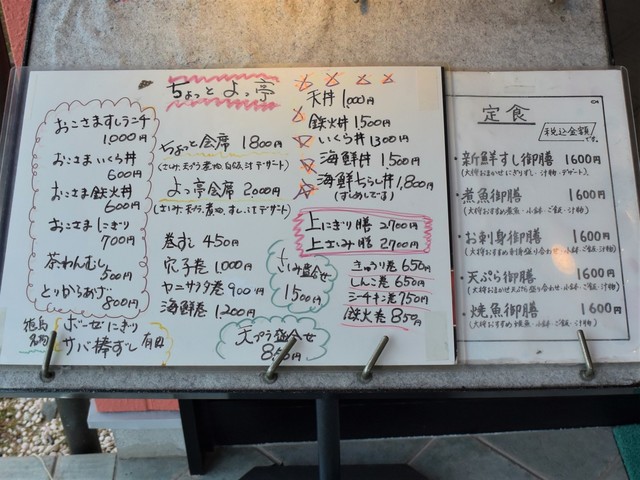 ちょっと よっ亭
おこさますしランチ
1,000円
おこさまいくら丼
600円
おこさま鉄火丼
600円
おこさまにぎり
700円
茶わんむし
500円
とりからあげ
800円
名物
ボーゼにぎり
サバ棒ずし 有ります
ちょっと会席 1800円
よっ亭会席 2,000円
巻ずし 450円
穴子巻 1,000円
ヤニサラダ巻 900円
海鮮巻 1,200円
さしみ盛合せ
1500円
天プラ盛合せ
850円
天丼 1000円
鉄火丼 1500円
いくら丼 1300円
海鮮丼 1,500円
海鮮ちらし丼 1,800円
(すしめしです)
上にぎり膳 2,700円
上さしみ膳 2,700円
きゅうり巻 650円
しんこ巻 650円
シーチキン巻 750円
鉄火巻 850円
定食
税込金額です。
・新鮮すし御膳 1600円
(大将おまかせにぎりずし・汁物・デザート)
・煮魚御膳 1600円
(大将おすすめ煮魚・小鉢・ご飯・汁物)
・お刺身御膳 1600円
・天ぷら御膳 1600円
・焼魚御膳 1600円
(大将おすすめ焼魚・小鉢・ご飯・汁物)